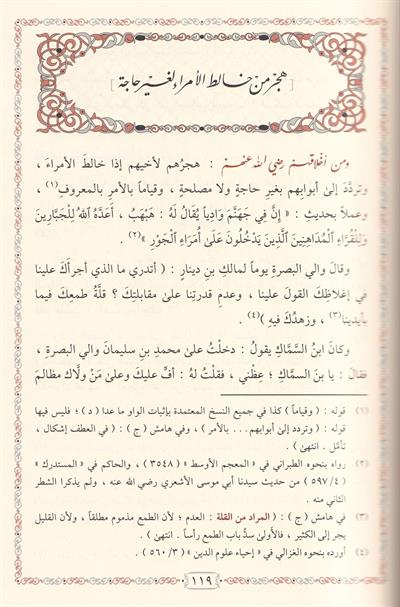 [هجر من خالط الأمراء لغير حاجة]
ومن أخلاقهم رضي الله عنهم : هجرهم لأخيهم إذا خالطَ الأمراءَ ،
وتردَّدَ إلىٰ أبوابِهم بغيرِ حاجةٍ ولا مصلحةٍ ، وقياماً بالأمرِ بالمعروفِ(١) ،
وعملاً بحديثِ : « إِنَّ فِي جَهَنَّمَ وَادِياً يُقَالُ لَهُ : هَبْهَبُ ، أَعَدَّهُ ٱللهُ لِلْجَبَّارِينَ
وَلِلْقُرَّاءِ ٱلْمُدَاهِنِينَ ٱلَّذِينَ يَدْخُلُونَ عَلَىٰ أُمَرَاءِ ٱلْجَوْرِ »(٢) .
وقالَ والي البصرةِ يوماً لمالكِ بنِ دينارٍ : ( أتدري ما الذي أجرأَكَ علينا
في إغلاظِكَ القولَ علينا ، وعدمِ قدرتِنا علىٰ مقابلتِكَ ؟ قلَّةُ طمعِكَ فيما
بأيدينا(٣) ، وزهدُكَ فيهِ )(٤) .
وكانَ ابنُ السَّمَّاكِ يقولُ : دخلْتُ علىٰ محمدِ بنِ سليمانَ والي البصرةِ ،
فقالَ : يا بنَ السماكِ ؛ عِظْني ، فقلْتُ لهُ : أفٍّ عليكَ وعلىٰ مَنْ ولَّاكَ مظالمَ
(١) قوله : ( وقياماً ) كذا في جميع النسخ المعتمدة بإثبات الواو ما عدا ( د ) ؛ فليس فيها
قوله : ( وتردد إلىٰ أبوابهم... بالأمر ) ، وفي هامش ( ج ) : ( في العطف إشكال ،
تأمَّل . انتهىٰ ) .
(٢) رواه بنحوه الطبراني في « المعجم الأوسط » ( ٣٥٤٨ ) ، والحاكم في « المستدرك »
( ٥٩٧/٤ ) من حديث سيدنا أبي موسى الأشعري رضي الله عنه ، ولم يذكرا الشطر
الثاني منه .
(٣) في هامش ( ج ) : ( المراد من القلة : العدم ؛ لأن الطمع مذموم مطلقاً ، ولأن القليل
يجر إلى الكثير ، فالأولىٰ سدُّ باب الطمع رأساً . انتهىٰ ) .
(٤) أورده بنحوه الغزالي في « إحياء علوم الدين » ( ٥٦٠/٣ ) .
١١٩